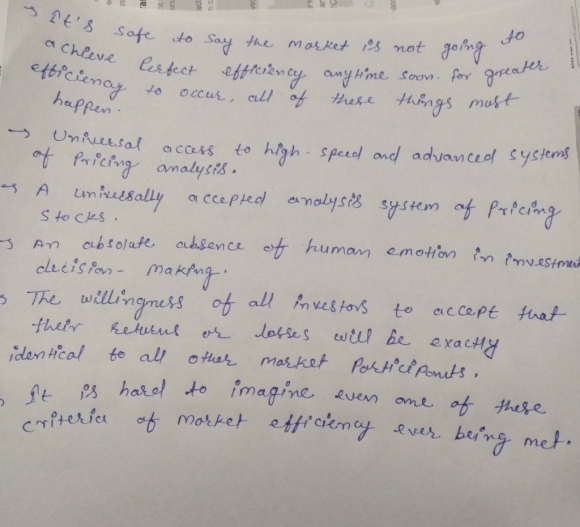 → It's safe to say the market is not going to
achieve perfect efficiency anytime soon. for greater
efficiency to occur, all of these things must
happen.
→ Universal access to high-speed and advanced systems
of Pricing analysis.
→ A universally accepted analysis system of Pricing
stocks.
→ An absolute absence of human emotion in investment
decision-making.
→ The willingness of all investors to accept that
their returns or losses will be exactly
identical to all other market Participants.
→ It is hard to imagine even one of these
criteria of market efficiency ever being met.